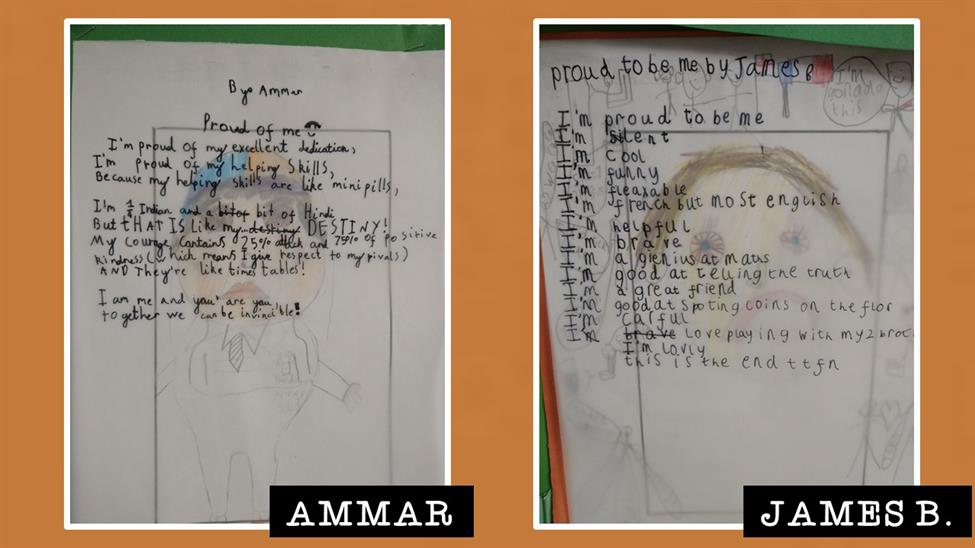 Bye Ammar
Proud of me
I'm proud of my excellent dedication,
I'm proud of my helping skills,
Because my helping skills are like mini pills,
I'm Indian and a bitof bit of Hindi
But tHAT IS like my destiny DESTINY!
My courage contains 25% attack and 75% of positive
kindness (which means I give respect to my rivals)
AND They're like times tables!
I am me and you are you
together we can be invincible!
AMMAR
proud to be me by James B
I'm gonado this
I'm proud to be me
I'm silent
I'm cool
I'm funny
I'm fleaxable
I'm french but most english
I'm helpful
I'm brave
I'm a gienius at maths
I'm good at telling the truth
I'm a great friend
I'm good at spoting coins on the flor
I'm carful
I'm brave love playing with my 2 broth
I'm lovly
this is the end ttfn
JAMES B.